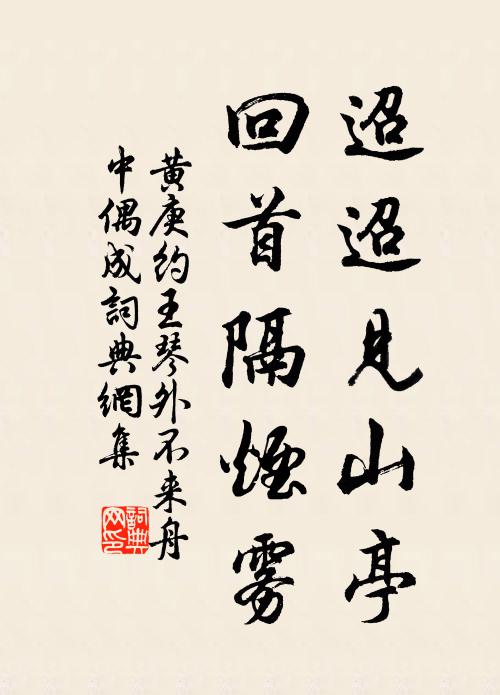 迢迢見山亭
回首隔煙雾
黄庚约王琴外不来舟
中偶成詞典網集
詞典
网印